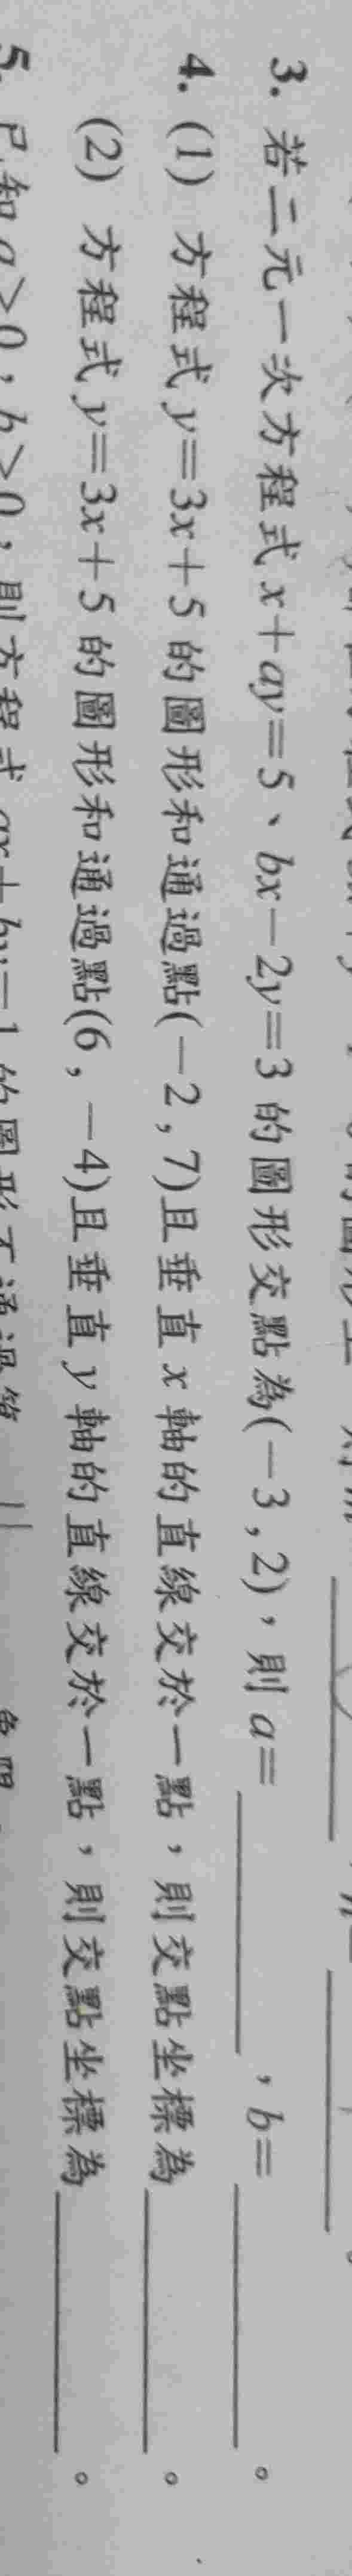 3. 若二元一次方程式 x+ay=5、bx-2y=3 的圖形交點為(-3,2),則 a=________,b=________。
4. (1) 方程式 y=3x+5 的圖形和通過點(-2,7)且垂直 x 軸的直線交於一點,則交點坐標為________。
(2) 方程式 y=3x+5 的圖形和通過點(6,-4)且垂直 y 軸的直線交於一點,則交點坐標為________。
5. 已知 a>0,b>0,則方程式 ax+by=1 的圖形不通過第